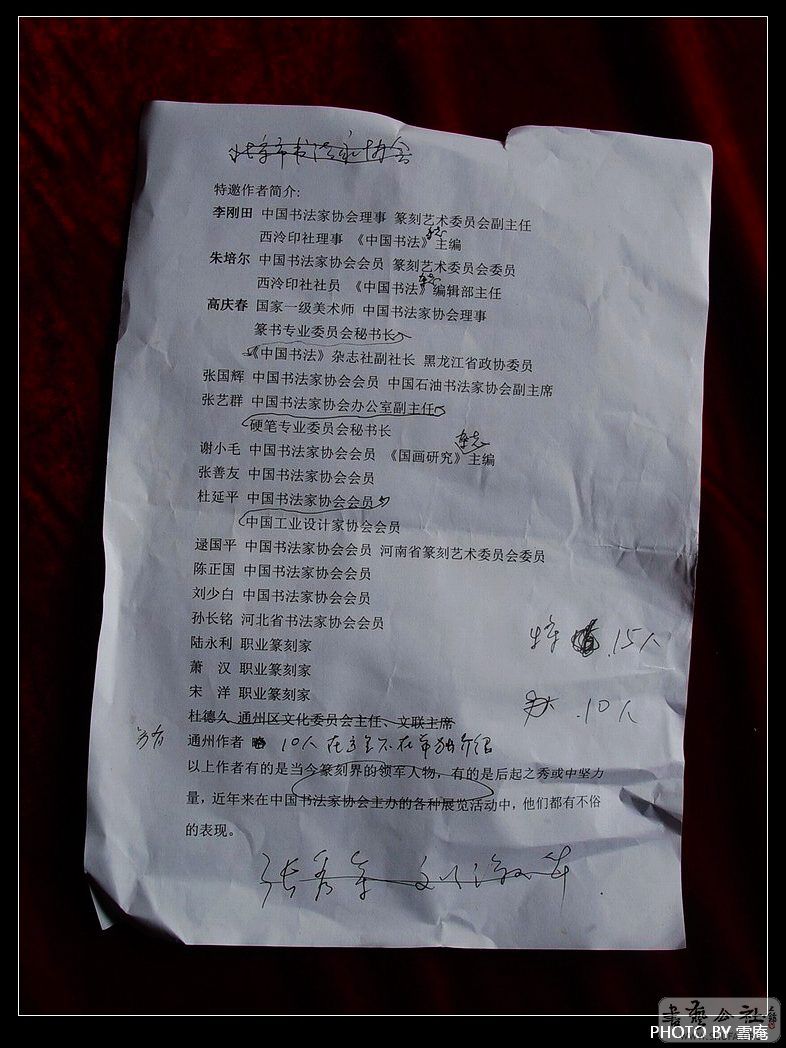 北京市书法家协会
特邀作者简介:
李刚田 中国书法家协会理事 篆刻艺术委员会副主任
西泠印社理事 《中国书法》杂志主编
朱培尔 中国书法家协会会员 篆刻艺术委员会委员
西泠印社社员 《中国书法》杂志编辑部主任
高庆春 国家一级美术师 中国书法家协会理事
篆书专业委员会秘书长
《中国书法》杂志社副社长 黑龙江省政协委员
张国辉 中国书法家协会会员 中国石油书法家协会副主席
张艺群 中国书法家协会办公室副主任
硬笔专业委员会秘书长
谢小毛 中国书法家协会会员 《国画研究》杂志主编
张善友 中国书法家协会会员
杜延平 中国书法家协会会员
中国工业设计家协会会员
逯国平 中国书法家协会会员 河南省篆刻艺术委员会委员
陈正国 中国书法家协会会员
刘少白 中国书法家协会会员
孙长铭 河北省书法家协会会员
陆永利 职业篆刻家
15人
萧 汉 职业篆刻家
宋 洋 职业篆刻家
10人
杜德久 通州区文化委员会主任、文联主席
另有
通州作者 10人在这里不在单独介绍
以上作者有的是当今篆刻界的领军人物，有的是后起之秀或中坚力
量，近年来在中国书法家协会主办的各种展览活动中，他们都有不俗
的表现。
書藝公社
PHOTO BY 雪庵